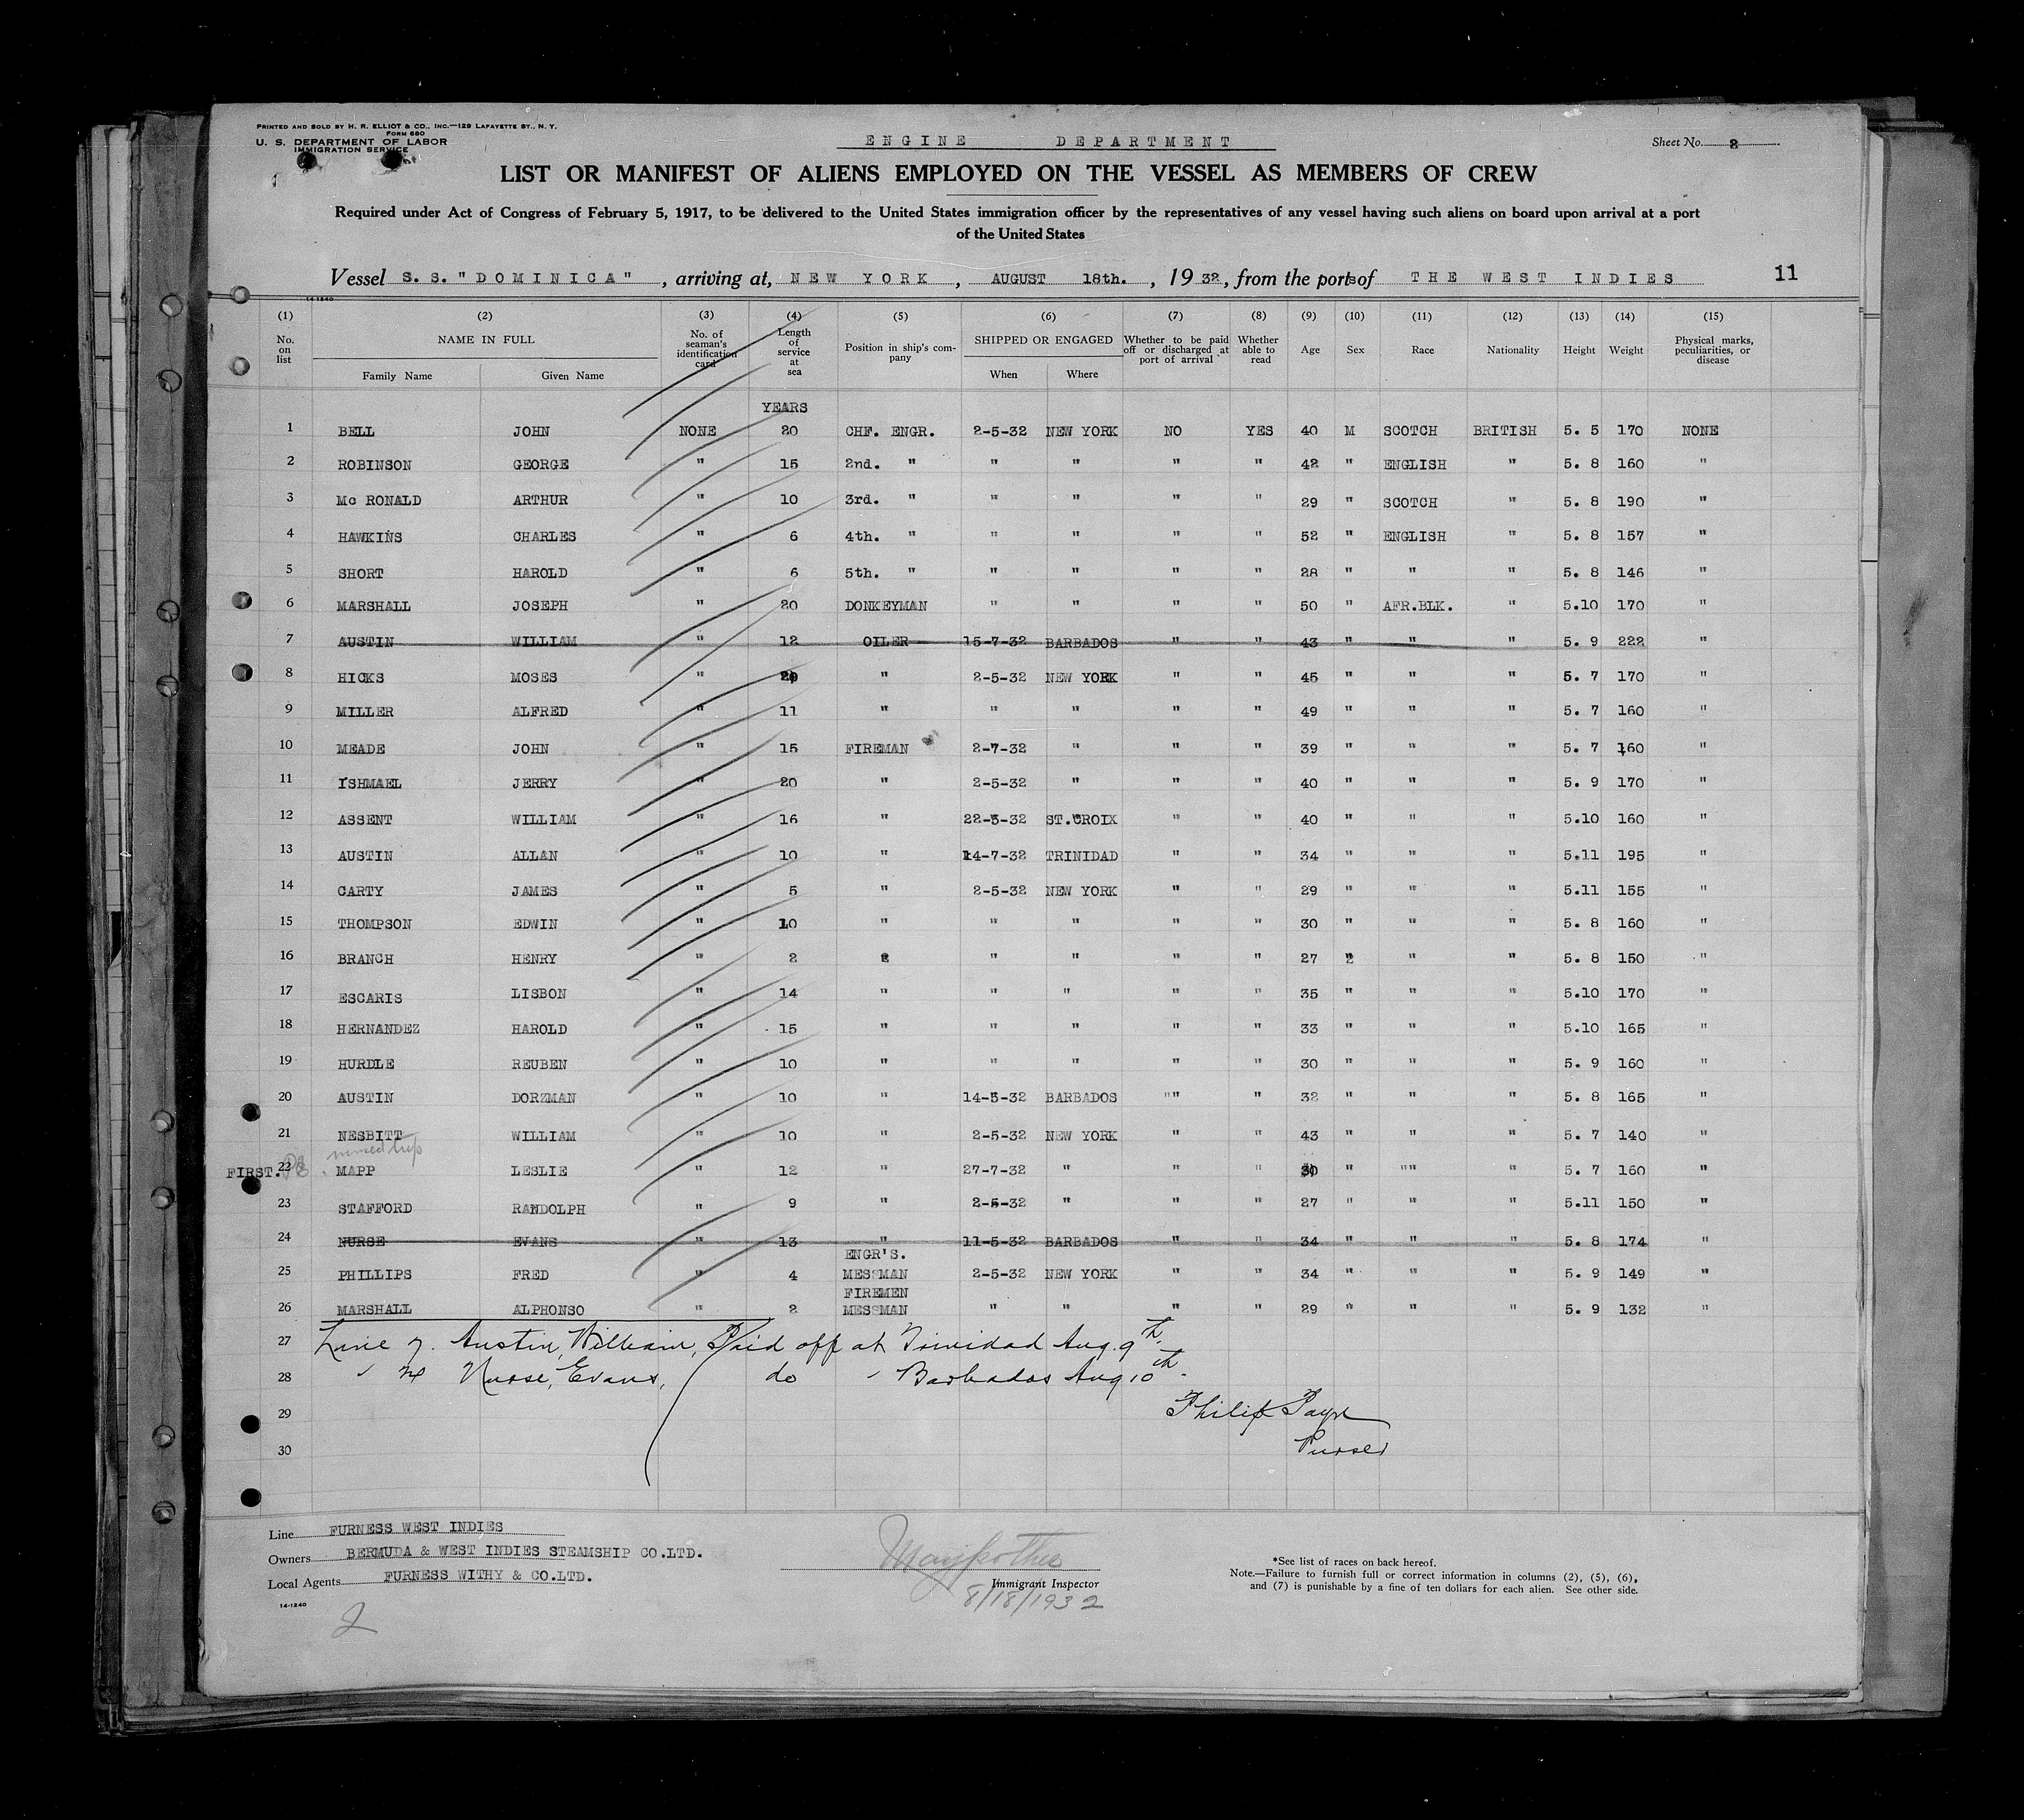 PRINTED AND SOLD BY H. R. ELLIOT & CO., INC.—129 LAFAYETTE ST., N. Y.
FORM 680
U. S. DEPARTMENT OF LABOR
IMMIGRATION SERVICE
ENGINE DEPARTMENT
Sheet No. 2
LIST OR MANIFEST OF ALIENS EMPLOYED ON THE VESSEL AS MEMBERS OF CREW
Required under Act of Congress of February 5, 1917, to be delivered to the United States immigration officer by the representatives of any vessel having such aliens on board upon arrival at a port
of the United States
Vessel S.S. "DOMINICA", arriving at, NEW YORK, AUGUST 18th., 1932, from the ports of THE WEST INDIES 11
14-1240
(1) (2) (3) (4) (5) (6) (7) (8) (9) (10) (11) (12) (13) (14) (15)
No. on list NAME IN FULL Family Name Given Name No. of seaman's identification card Length of service at sea Position in ship's company SHIPPED OR ENGAGED When Where Whether to be paid off or discharged at port of arrival Whether able to read Age Sex Race Nationality Height Weight Physical marks, peculiarities, or disease
YEARS
1 BELL JOHN NONE 20 CHF. ENGR. 2-5-32 NEW YORK NO YES 40 M SCOTCH BRITISH 5. 5 170 NONE
2 ROBINSON GEORGE " 15 2nd. " " " " " 42 " ENGLISH " 5. 8 160 "
3 Mc RONALD ARTHUR " 10 3rd. " " " " " 29 " SCOTCH " 5. 8 190 "
4 HAWKINS CHARLES " 6 4th. " " " " " 52 " ENGLISH " 5. 8 157 "
5 SHORT HAROLD " 6 5th. " " " " " 28 " " " 5. 8 146 "
6 MARSHALL JOSEPH " 20 DONKEYMAN " " " " 50 " AFR.BLK. " 5.10 170 "
7 AUSTIN WILLIAM " 12 OILER 15-7-32 BARBADOS " " 43 " " " 5. 9 222 "
8 HICKS MOSES " 20 " 2-5-32 NEW YORK " " 45 " " " 5. 7 170 "
9 MILLER ALFRED " 11 " " " " " 49 " " " 5. 7 160 "
10 MEADE JOHN " 15 FIREMAN 2-7-32 " " " 39 " " " 5. 7 160 "
11 ISHMAEL JERRY " 20 " 2-5-32 " " " 40 " " " 5. 9 170 "
12 ASSENT WILLIAM " 16 " 22-5-32 ST.CROIX " " 40 " " " 5.10 160 "
13 AUSTIN ALLAN " 10 " 14-7-32 TRINIDAD " " 34 " " " 5.11 195 "
14 CARTY JAMES " 5 " 2-5-32 NEW YORK " " 29 " " " 5.11 155 "
15 THOMPSON EDWIN " 10 " " " " " 30 " " " 5. 8 160 "
16 BRANCH HENRY " 2 " " " " " 27 " " " 5. 8 150 "
17 ESCARIS LISBON " 14 " " " " " 35 " " " 5.10 170 "
18 HERNANDEZ HAROLD " 15 " " " " " 33 " " " 5.10 165 "
19 HURDLE REUBEN " 10 " " " " " 30 " " " 5. 9 160 "
20 AUSTIN DORZMAN " 10 " 14-5-32 BARBADOS "" " 32 " " " 5. 8 165 "
21 NESBITT WILLIAM " 10 " 2-5-32 NEW YORK " " 43 " " " 5. 7 140 "
missed trip
FIRST. 22 MAPP LESLIE " 12 " 27-7-32 " " " 30 " "" " 5. 7 160 "
23 STAFFORD RANDOLPH " 9 " 2-5-32 " " " 27 " " " 5.11 150 "
24 NURSE EVANS " 13 " 11-5-32 BARBADOS " " 34 " " " 5. 8 174 "
25 PHILLIPS FRED " 4 ENGR'S. MESSMAN 2-5-32 NEW YORK " " 34 " " " 5. 9 149 "
26 MARSHALL ALPHONSO " 2 FIREMEN MESSMAN " " " " 29 " " " 5. 9 132 "
27 Line 7. Austin, William, Paid off at Trinidad Aug. 9th.
28 " 24 Nurse, Evans, do " Barbados Aug 10th.
29 Philip Payne
30 Purser
Line FURNESS WEST INDIES
Owners BERMUDA & WEST INDIES STEAMSHIP CO.LTD.
Local Agents FURNESS WITHY & CO.LTD.
14-1240
2
Immigrant Inspector
8/18/1932
*See list of races on back hereof.
Note.—Failure to furnish full or correct information in columns (2), (5), (6),
and (7) is punishable by a fine of ten dollars for each alien. See other side.